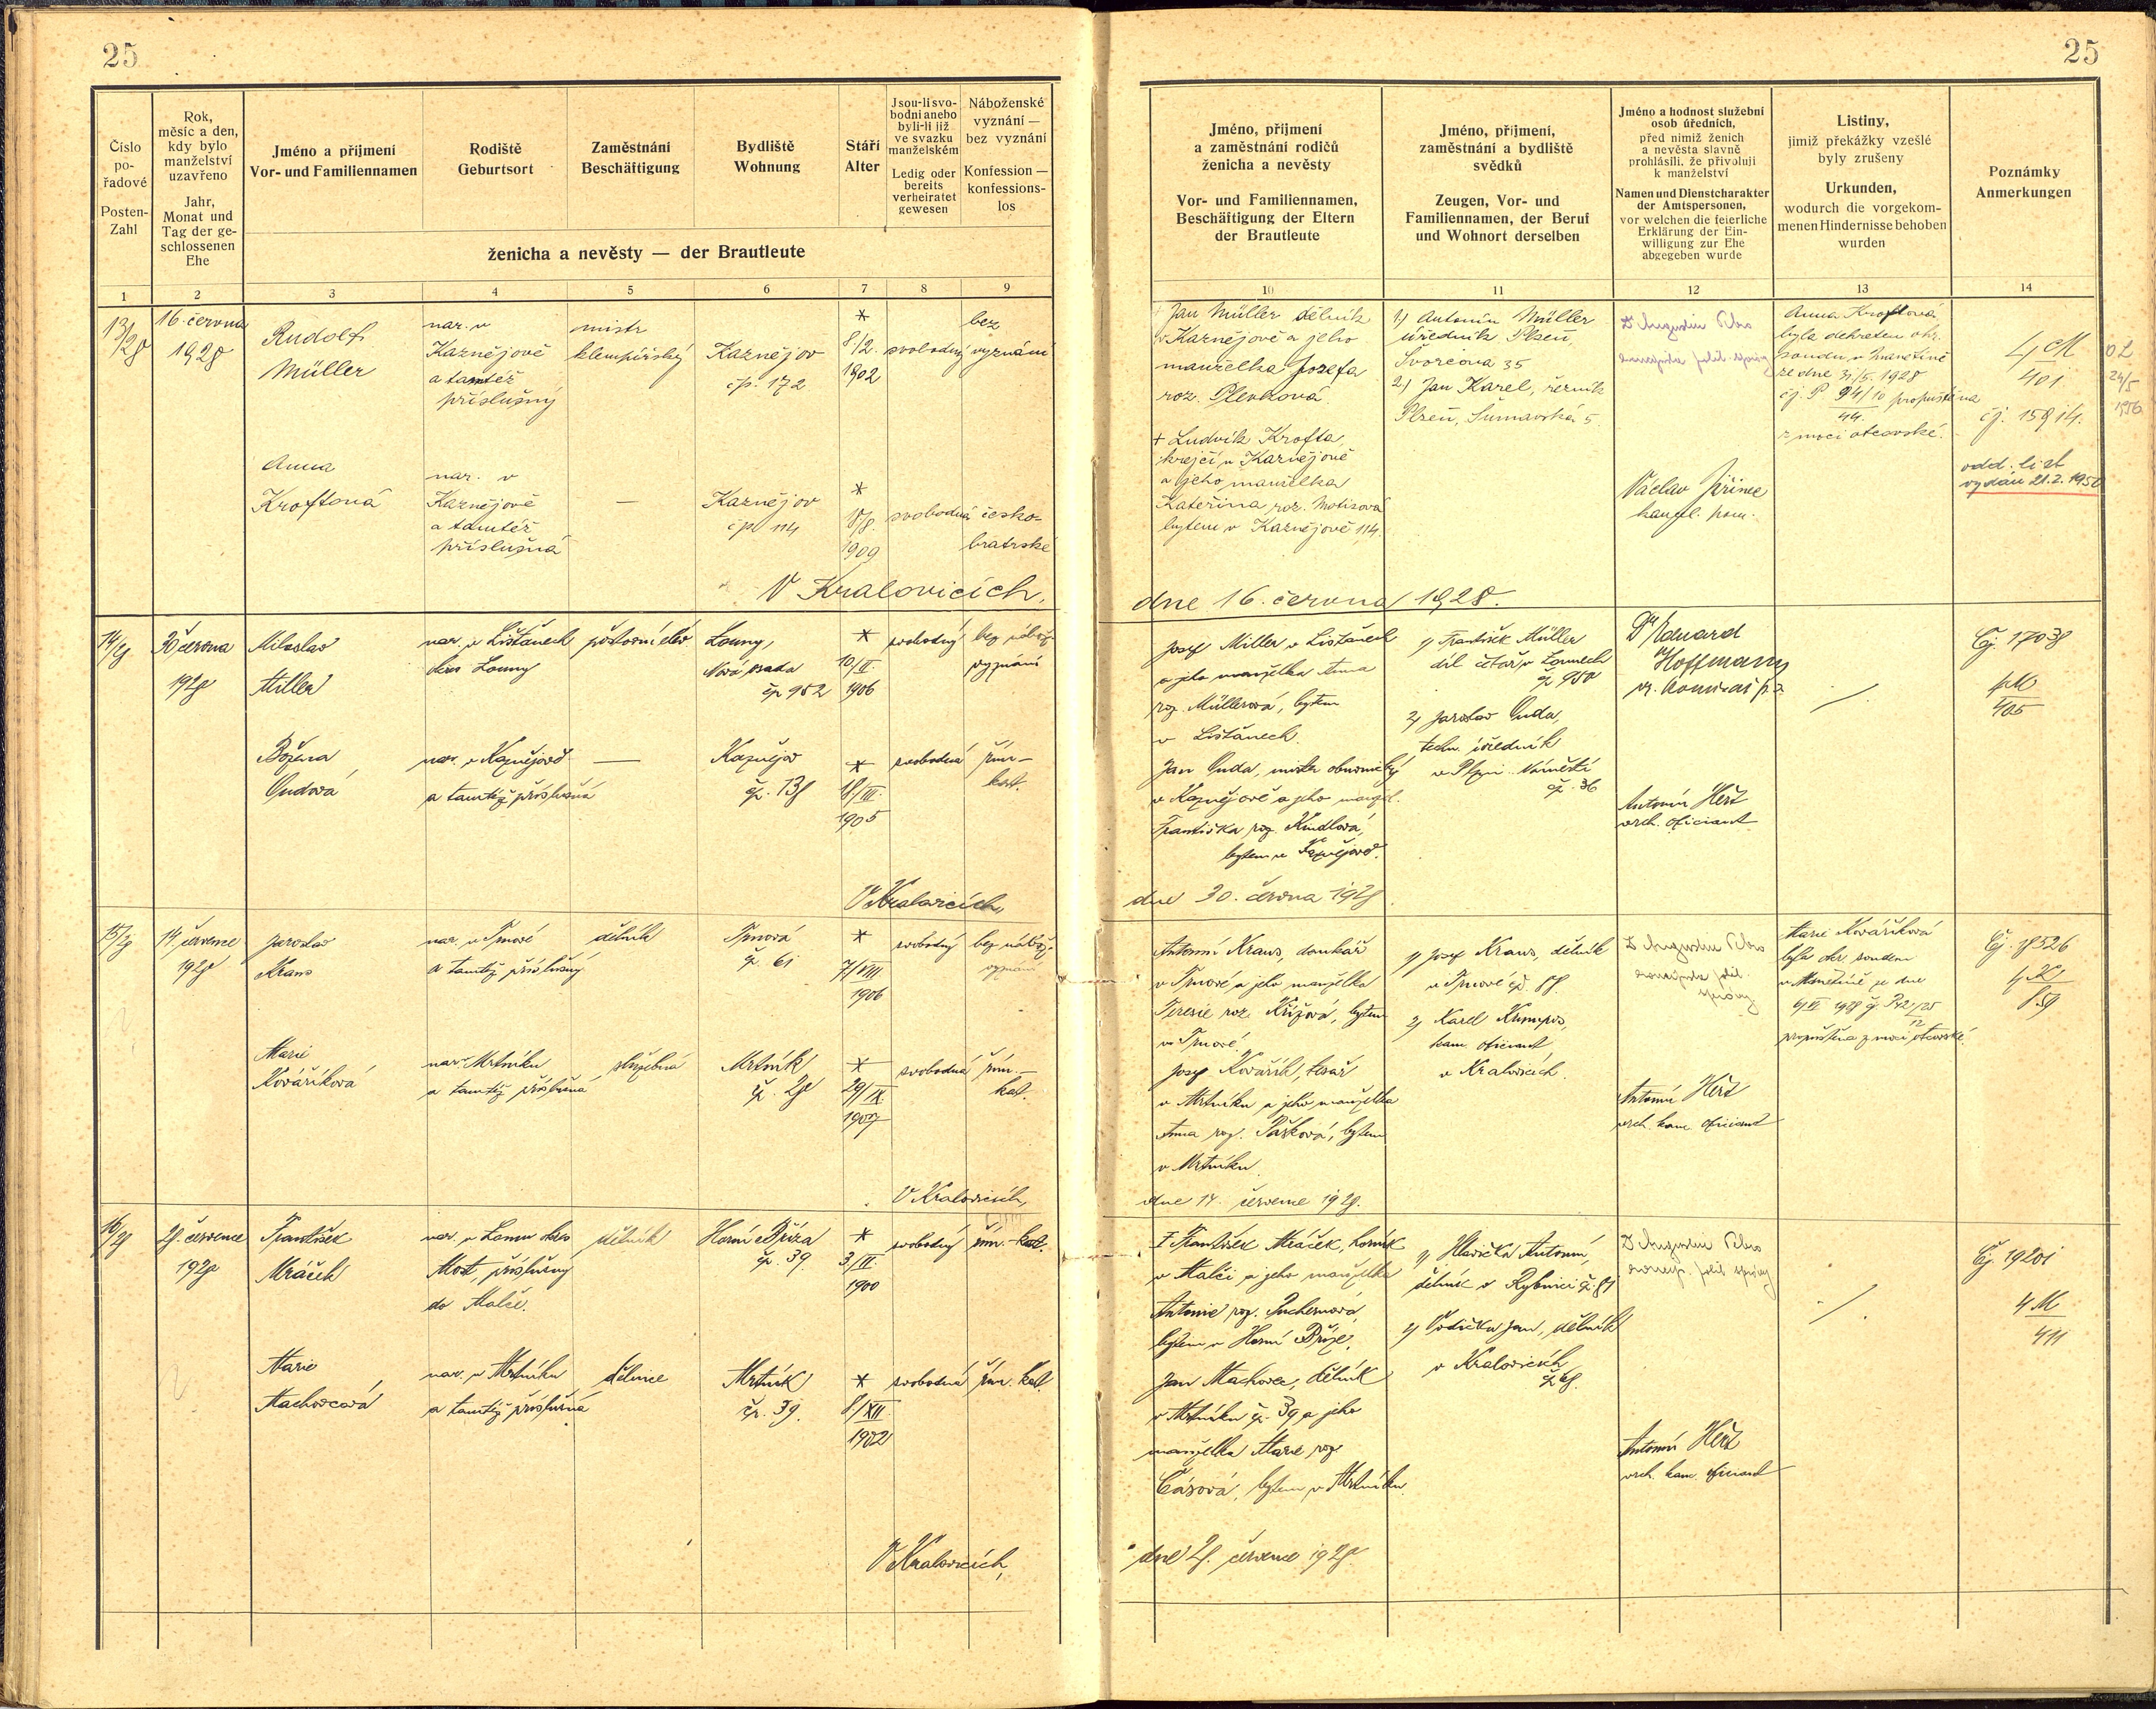 25
25
Číslo
po-
řadové
Posten-
Zahl
Rok,
měsíc a den,
kdy bylo
manželství
uzavřeno
Jahr,
Monat und
Tag der ge-
schlossenen
Ehe
Jméno a příjmení
Vor- und Familiennamen
Rodiště
Geburtsort
Zaměstnání
Beschäftigung
Bydliště
Wohnung
Stáří
Alter
Jsou-li svo-
bodni anebo
byli-li již
ve svazku
manželském
Ledig oder
bereits
verheiratet
gewesen
Náboženské
vyznání —
bez vyznání
Konfession —
konfessions-
los
ženicha a nevěsty — der Brautleute
1 2 3 4 5 6 7 8 9
13/28
16. června
1928
Rudolf
Müller
nar. v
Kaznějově
a tamtéž
příslušný
mistr
klempířský
Kaznějov
čp. 172
*
8/2.
1902
svobodný
bez
vyznání
Anna
Kroftová
nar. v
Kaznějově
a tamtéž
příslušná
—
Kaznějov
čp. 114
*
18/8.
1909
svobodná
česko-
bratrské
V Kralovicích,
14/28
30. června
1928
Miloslav
Miller
nar. v Lišťanech
okres Louny
poštovní elév
Louny,
Nová osada
čp 952
*
10/II.
1906
svobodný
bez nábož.
vyznání
Božena
Gudová
nar. v Kaznějově
a tamtéž příslušná
—
Kaznějov
čp. 138
*
18/III.
1905
svobodná
řím-
kat.
V Kralovicích,
15/28
14. července
1928
Jaroslav
Kraus
nar. v Trnové
a tamtéž příslušný
dělník
Trnová
čp. 61
*
7/VIII
1906
svobodný
bez nábož.
vyznání
Marie
Kováříková
nar. v Mrtníku
a tamtéž příslušná
služebná
Mrtník
čp. 28
*
29/IX.
1907
svobodná
řím.-
kat.
V Kralovicích,
16/28
28. července
1928
František
Mráček
nar. v Lomu okres
Most, příslušný
do Malče.
dělník
Horní Bříza
čp. 39.
*
3/IV.
1900
svobodný
řím.-kat.
Marie
Machovcová
nar. v Mrtníku
a tamtéž příslušná
dělnice
Mrtník
čp. 39.
*
8/XII.
1902
svobodná
řím. kat.
V Kralovicích,
Jméno, příjmení
a zaměstnání rodičů
ženicha a nevěsty
Vor- und Familiennamen,
Beschäftigung der Eltern
der Brautleute
Jméno, příjmení,
zaměstnání a bydliště
svědků
Zeugen, Vor- und
Familiennamen, der Beruf
und Wohnort derselben
Jméno a hodnost služební
osob úředních,
před nimiž ženich
a nevěsta slavně
prohlásili, že přivolují
k manželství
Namen und Dienstcharakter
der Amtspersonen,
vor welchen die feierliche
Erklärung der Ein-
willigung zur Ehe
abgegeben wurde
Listiny,
jimiž překážky vzešlé
byly zrušeny
Urkunden,
wodurch die vorgekom-
menen Hindernisse behoben
wurden
Poznámky
Anmerkungen
10 11 12 13 14
Jan Müller dělník
v Kaznějově a jeho
manželka Josefa
roz. Plevková.
+ Ludvík Krofta,
krejčí v Kaznějově
a jeho manželka
Kateřina roz. Motisová
bytem v Kaznějově 114.
1) Antonín Müller
úředník Plzeň,
Švorcova 35
2) Jan Karel, řezník
Plzeň, Šumavská 5
Václav Jiřinec
kancl. pom.
Anna Kroftová
byla dekretem okr.
soudu v Manetíně
ze dne 31/5. 1928
čj. P 94/10 propuštěna
44
z moci otcovské.
4 M
401
čj. 15814.
odd. list
vydán 21.2.1950
OL
24/5
1956
dne 16. června 1928.
Josef Miller v Lišťanech
a jeho manželka Anna
roz. Müllerová, bytem
v Lišťanech.
Jan Guda, mistr obuvnický
v Kaznějově a jeho manžel.
Františka roz. Kindlová,
bytem v Kaznějově.
1) František Müller
díl. četař v Lounech
čp 950
2) Jaroslav Guda,
techn. úředník
v Plzni Náměstí
čp. 36
Dr. Eduard
Hoffmann
vr. komisař p. s.
Antonín Herž
vrch. oficiant
Čj. 17038
4M
405
dne 30. června 1928
Antonín Kraus, domkář
v Trnové a jeho manželka
Terezie roz. Křížová, bytem
v Trnové.
Josef Kovářík, tesař
v Mrtníku a jeho manželka
Anna roz. Pašková, bytem
v Mrtníku.
1) Josef Kraus, dělník
v Trnové čp. 88
2) Karel Krumpos,
kanc. oficiant
v Kralovicích.
Antonín Herž
vrch. kanc. oficiant
Marie Kováříková
byla okr. soudem
v Manetíně ze dne
6/VI 1928 čj. P42/25
12
propuštěna z moci otcovské.
Čj. 18526
4K
859
dne 14. července 1928.
+ František Mráček, horník
v Malči a jeho manželka
Antonie roz. Puchernová,
bytem v Horní Bříze.
Jan Machovec, dělník
v Mrtníku čp. 39 a jeho
manželka Marie roz.
Čásová, bytem v Mrtníku.
1) Hlavička Antonín,
dělník v Rybnici čp. 81
2) Vodička Jan, dělník
v Kralovicích
Antonín Herž
vrch. kanc. oficiant
Čj. 19201
4M
411
dne 28. července 1928.